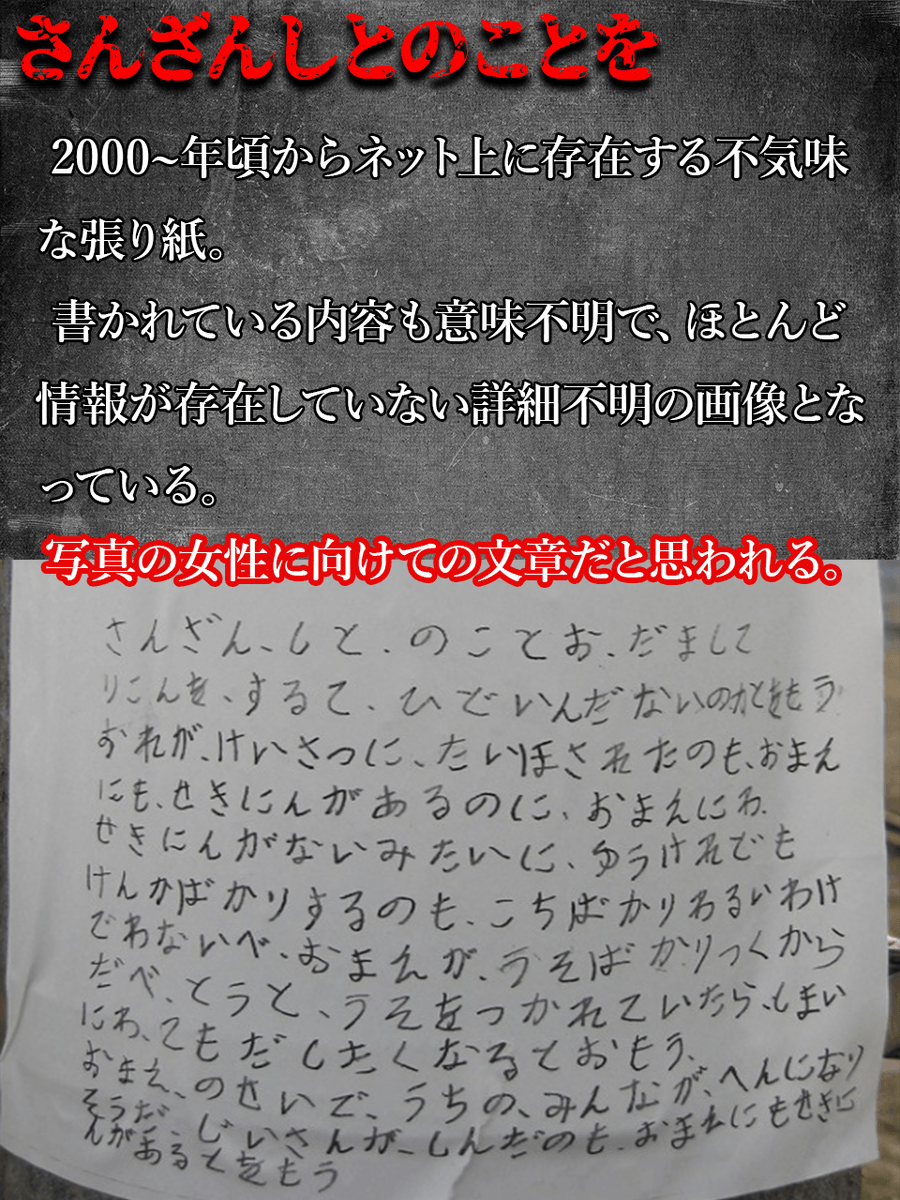 さんざんしとのことを
2000~年頃からネット上に存在する不気味
な張り紙。
書かれている内容も意味不明で、ほとんど
情報が存在していない詳細不明の画像とな
っている。
写真の女性に向けての文章だと思われる。
さんざん、しと、のことお、だまして
りこんを、するて、ひどいんだないのかとをもう
おれが、けいさつに、たいほされたのも、おまえ
にも、せきにんがあるのに、おまえにわ、
せきにんがないみたいに、ゆうけれでも
けんかばかりするのも、こちばかりわるいわけ
でわないべ、おまえが、うそばかりつくから
だべ、とうと、うそをつかれていたら、しまい
にわ、てもだしたくなるとおもう、
おまえ、のせいで、うちの、みんなが、へんになり
そうだ、じいさんが、しんだのも、おまえにもせきに
んがあるとをもう